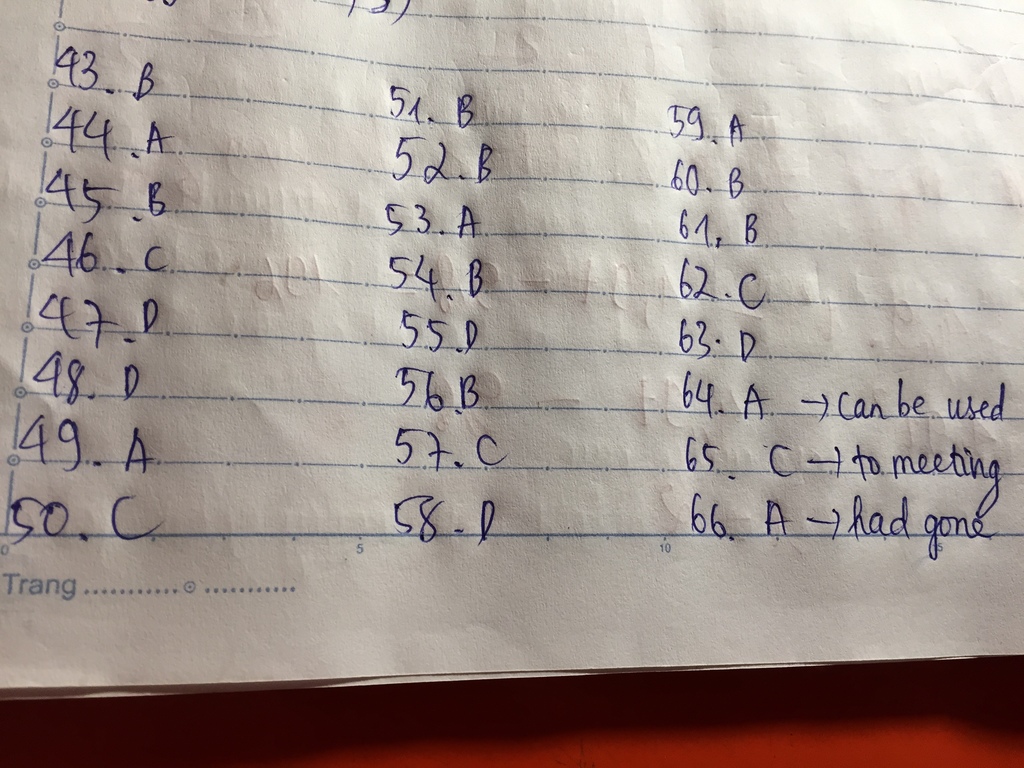 43. B
44. A
45. B
46. C
47. D
48. D
49. A
50. C
51. B
52. B
53. A
54. B
55. D
56. B
57. C
58. D
59. A
60. B
61. B
62. C
63. D
64. A → can be used
65. C → to meeting
66. A → had gone
0 5 10 15
Trang ........... ...........